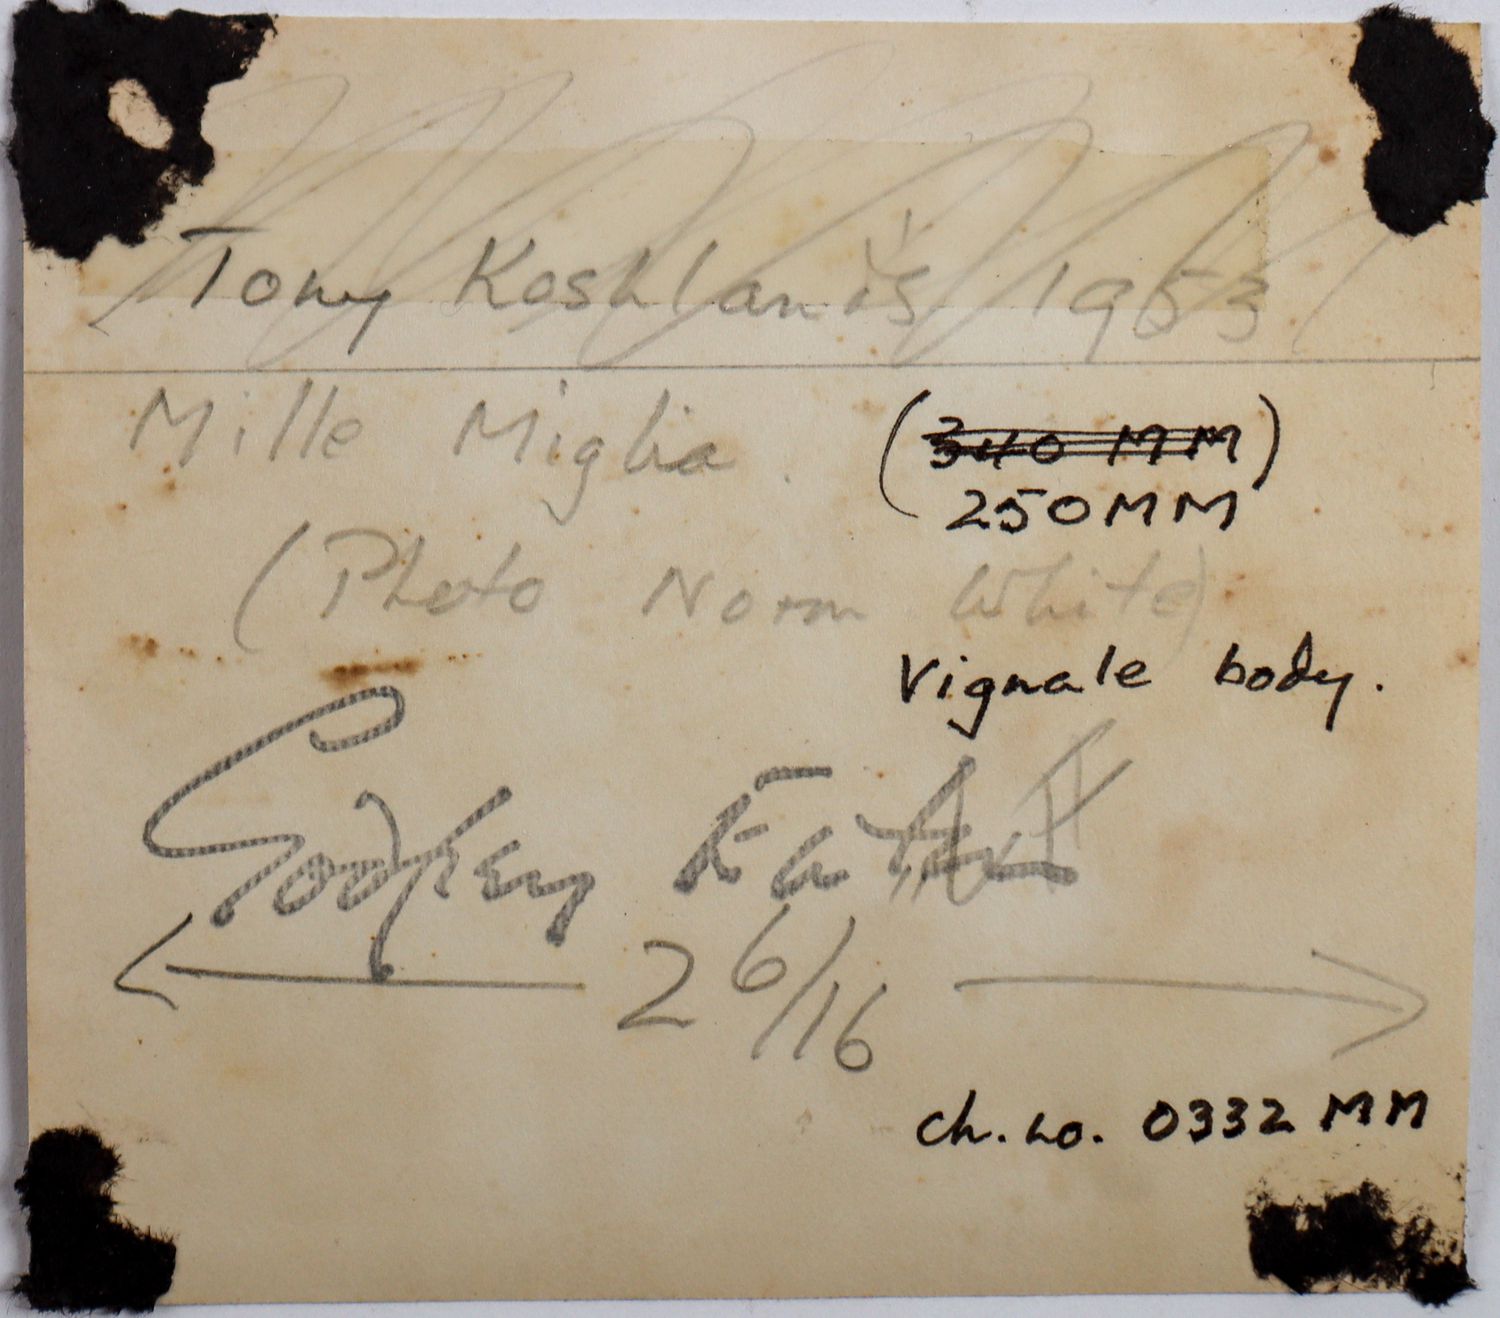 Tony Koshlan's 1953
Mille Miglia. (340 MM)
250MM
(Photo Norm White)
Vignale body.
Godfrey Eaton
2 6/16
ch. no. 0332 MM